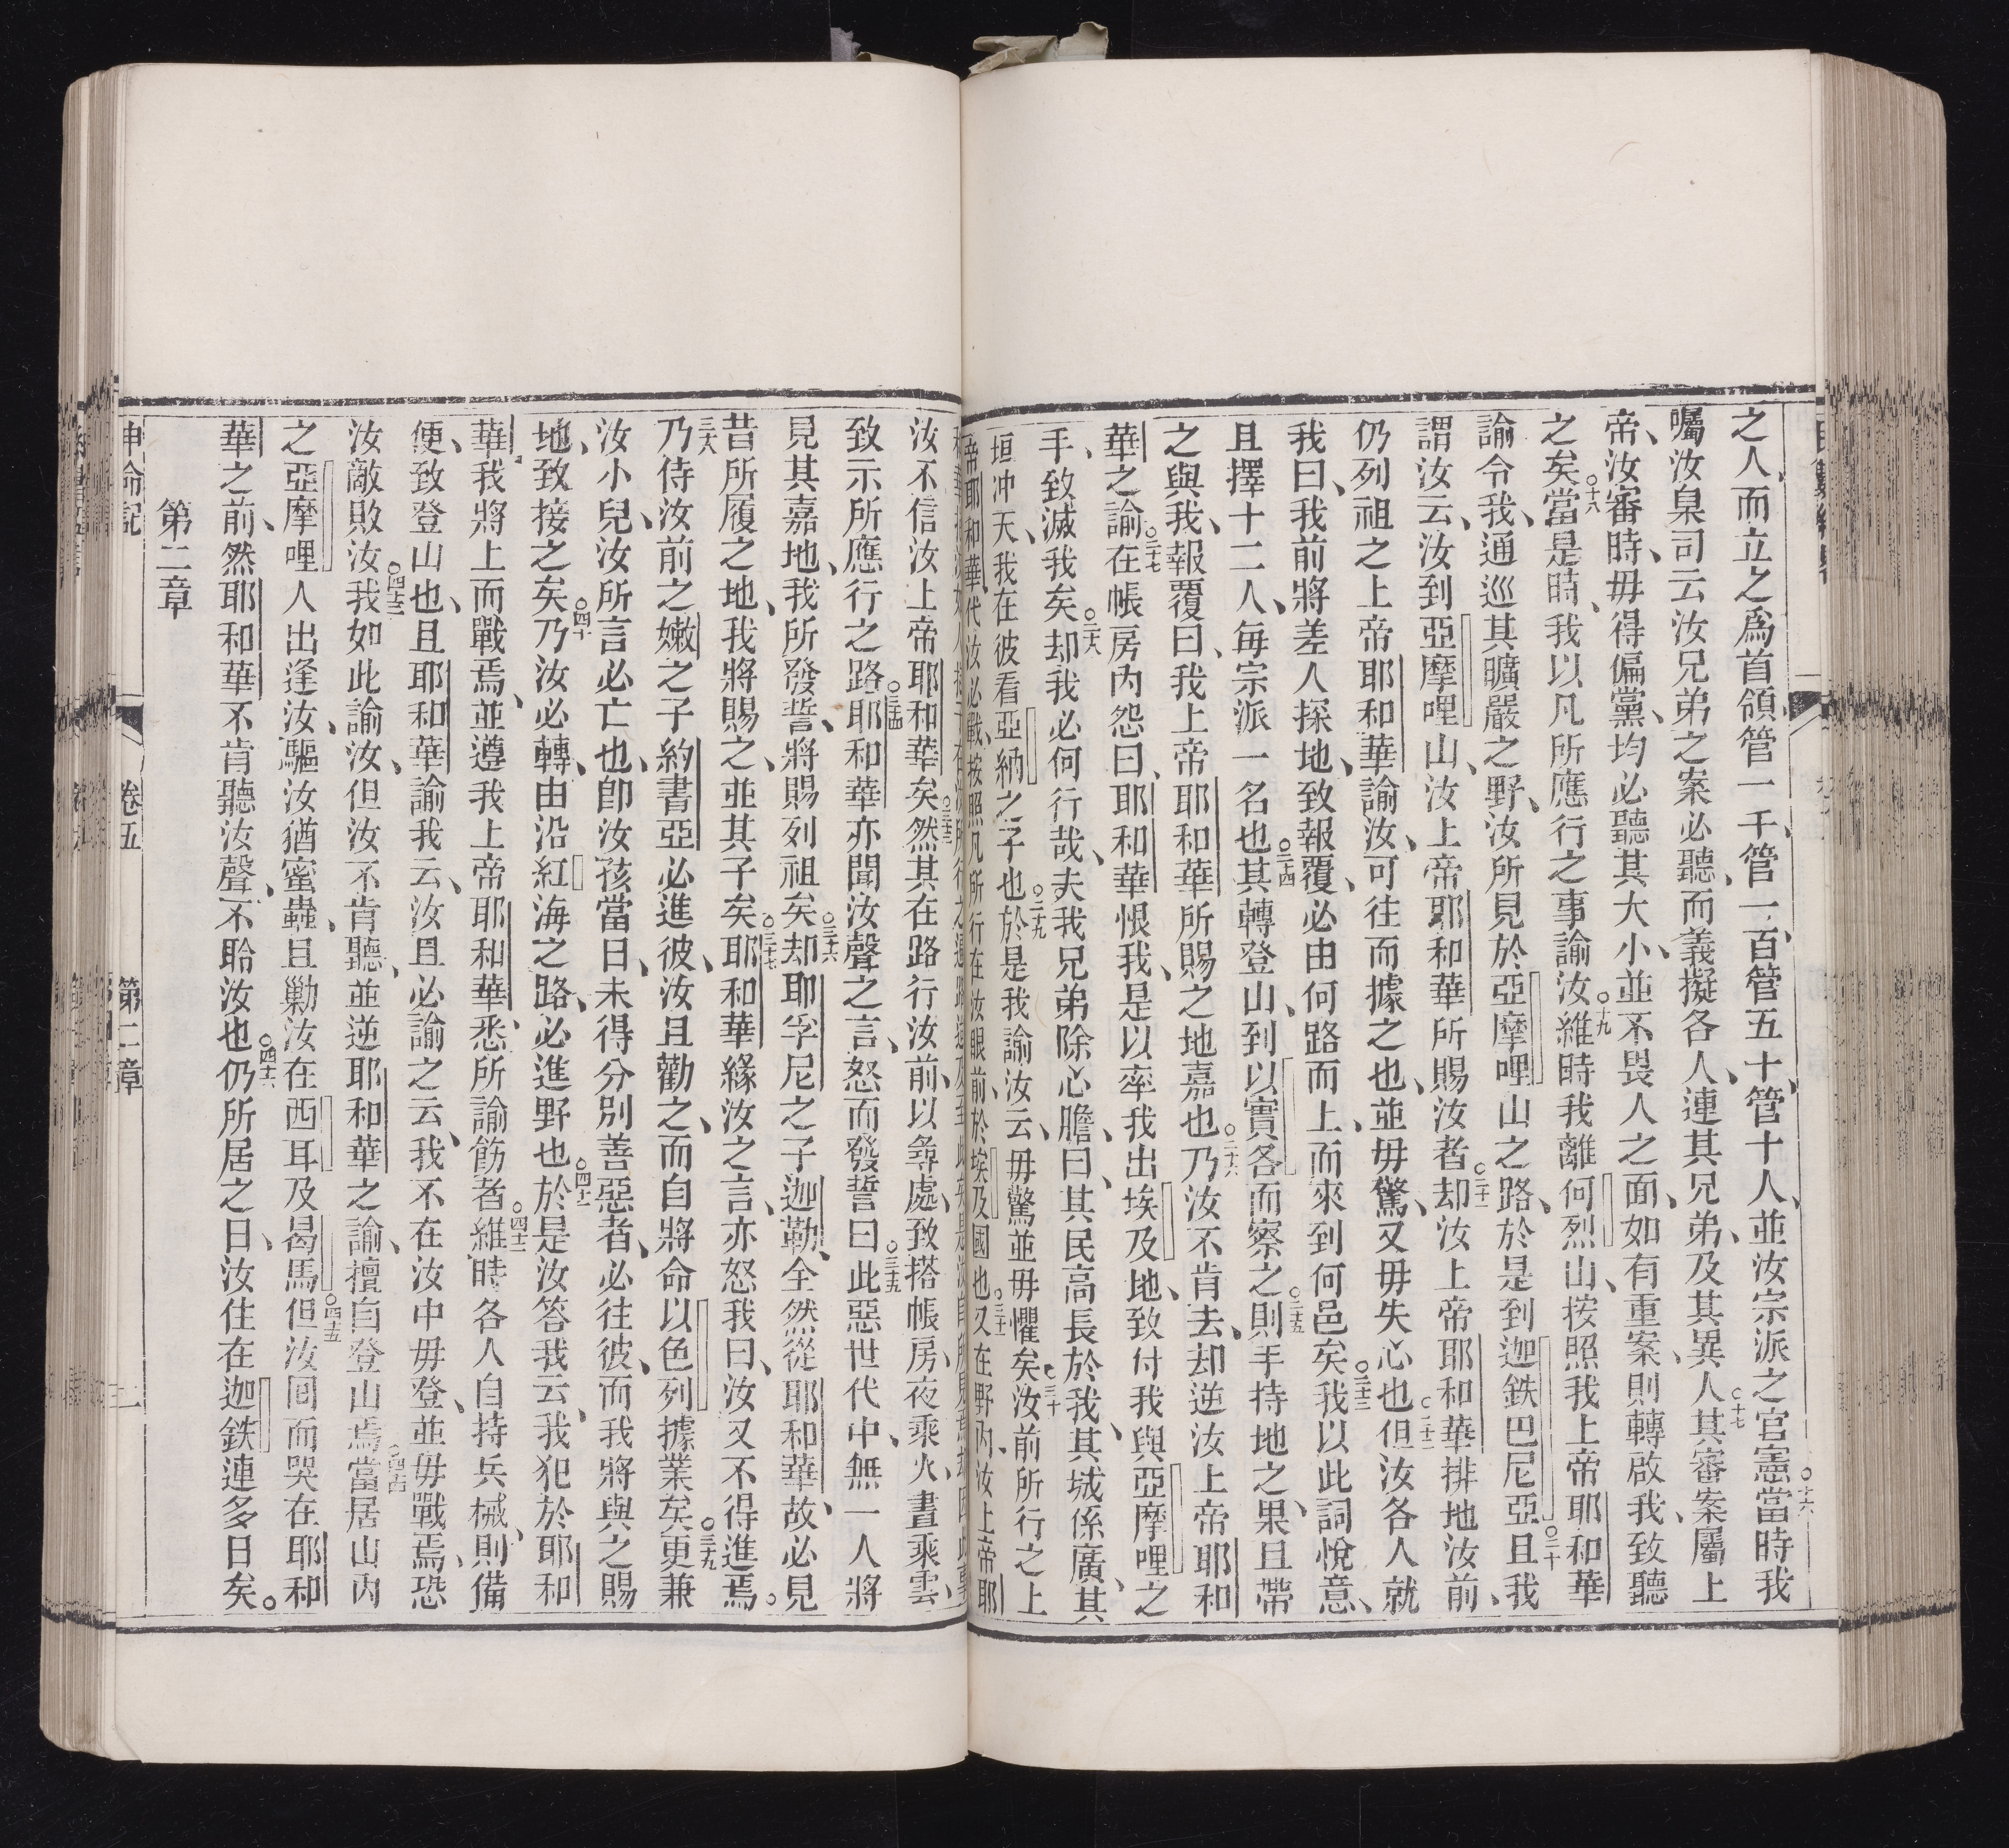 之人、而立之爲首領管一千、管一百、管五十、管十人、並汝宗派之官憲○十六當時我
囑汝臬司云汝兄弟之案必聽、而義擬各人、連其兄弟、及其異人○十七其審案屬上
帝、汝審時、毋得偏黨、均必聽其大小、並不畏人之面、如有重案、則轉啟我、致聽
之矣○十八當是時、我以凡所應行之事諭汝○十九維時我離何烈山、按照我上帝耶和華
諭令我、通巡其曠嚴之野、汝所見於亞摩哩山之路、於是到迦鉄巴尼亞○二十且我
謂汝云、汝到亞摩哩山、汝上帝耶和華所賜汝者○二十一却汝上帝耶和華排地汝前、
仍列祖之上帝耶和華諭汝、可往而據之也、並毋驚、又毋失心也○二十二但汝各人就
我曰、我前將差人探地、致報覆、必由何路而上、而來到何邑矣○二十三我以此詞悅意、
且擇十二人、每宗派一名也○二十四其轉登山、到以實各而察之○二十五則手持地之果、且帶
之與我、報覆曰、我上帝耶和華所賜之地嘉也○二十六乃汝不肯去、却逆汝上帝耶和
華之諭○二十七在帳房內怨曰、耶和華恨我、是以率我出埃及地、致付我與亞摩哩之
手、致滅我矣○二十八却我必何行哉、夫我兄弟除心膽曰、其民高長於我、其城係廣、其
垣冲天、我在彼看亞納之子也○二十九於是我諭汝云、毋驚並毋懼矣○三十汝前所行之上
帝耶和華、代汝必戰、按照凡所行在汝眼前、於埃及國也○三十一又在野內、汝上帝耶
汝不信汝上帝耶和華矣○三十三然其在路行汝前、以尋處、致搭帳房、夜乘火、晝乘雲、
致示所應行之路○三十四耶和華亦聞汝聲之言、怒而發誓曰○三十五此惡世代中、無一人將
見其嘉地、我所發誓、將賜列祖矣○三十六却耶孚尼之子迦勒、全然從耶和華、故必見
昔所履之地、我將賜之、並其子矣○三十七耶和華緣汝之言、亦怒我曰、汝又不得進焉。
三十八乃侍汝前之嫩之子約書亞必進彼、汝且勸之、而自將命以色列據業矣○三十九更兼
汝小兒、汝所言必亡也、卽汝孩當日、未得分別善惡者、必往彼、而我將與之賜
地、致接之矣○四十乃汝必轉、由沿紅海之路、必進野也○四十一於是汝答我云、我犯於耶和
華、我將上而戰焉、並遵我上帝耶和華、悉所諭飭者○四十二維時各人自持兵械、則備
便、致登山也、且耶和華諭我云、汝且必諭之云、我不在汝中毋登、並毋戰焉、恐
汝敵敗汝○四十三我如此諭汝、但汝不肯聽、並逆耶和華之諭、擅自登山焉○四十四當居山內
之亞摩哩人出逢汝、驅汝猶蜜蟲、且勦汝在西耳及曷馬○四十五但汝囘而哭在耶和
華之前、然耶和華不肯聽汝聲、不聆汝也○四十六仍所居之日、汝住在迦鉄連多日矣。
第二章
申命記
卷五
第二章